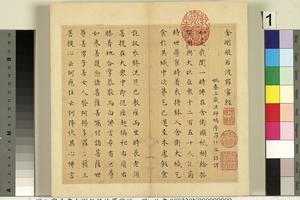 金剛般若波羅蜜經
姚秦三藏法師鳩摩羅什奉詔譯
如是我聞一時佛在舍衛國祇樹給孤
獨園與大比丘眾千二百五十人俱爾
時世尊食時著衣持鉢入舍衛大城乞
食於其城中次第乞已還至本處飯食
訖收衣鉢洗足已敷座而坐時長老須
菩提在大眾中即從座起偏袒右肩右
膝著地合掌恭敬而白佛言希有世尊
如來善護念諸菩薩善付囑諸菩薩世
尊善男子善女人發阿耨多羅三藐三
菩提心云何應住云何降伏其心佛言
1